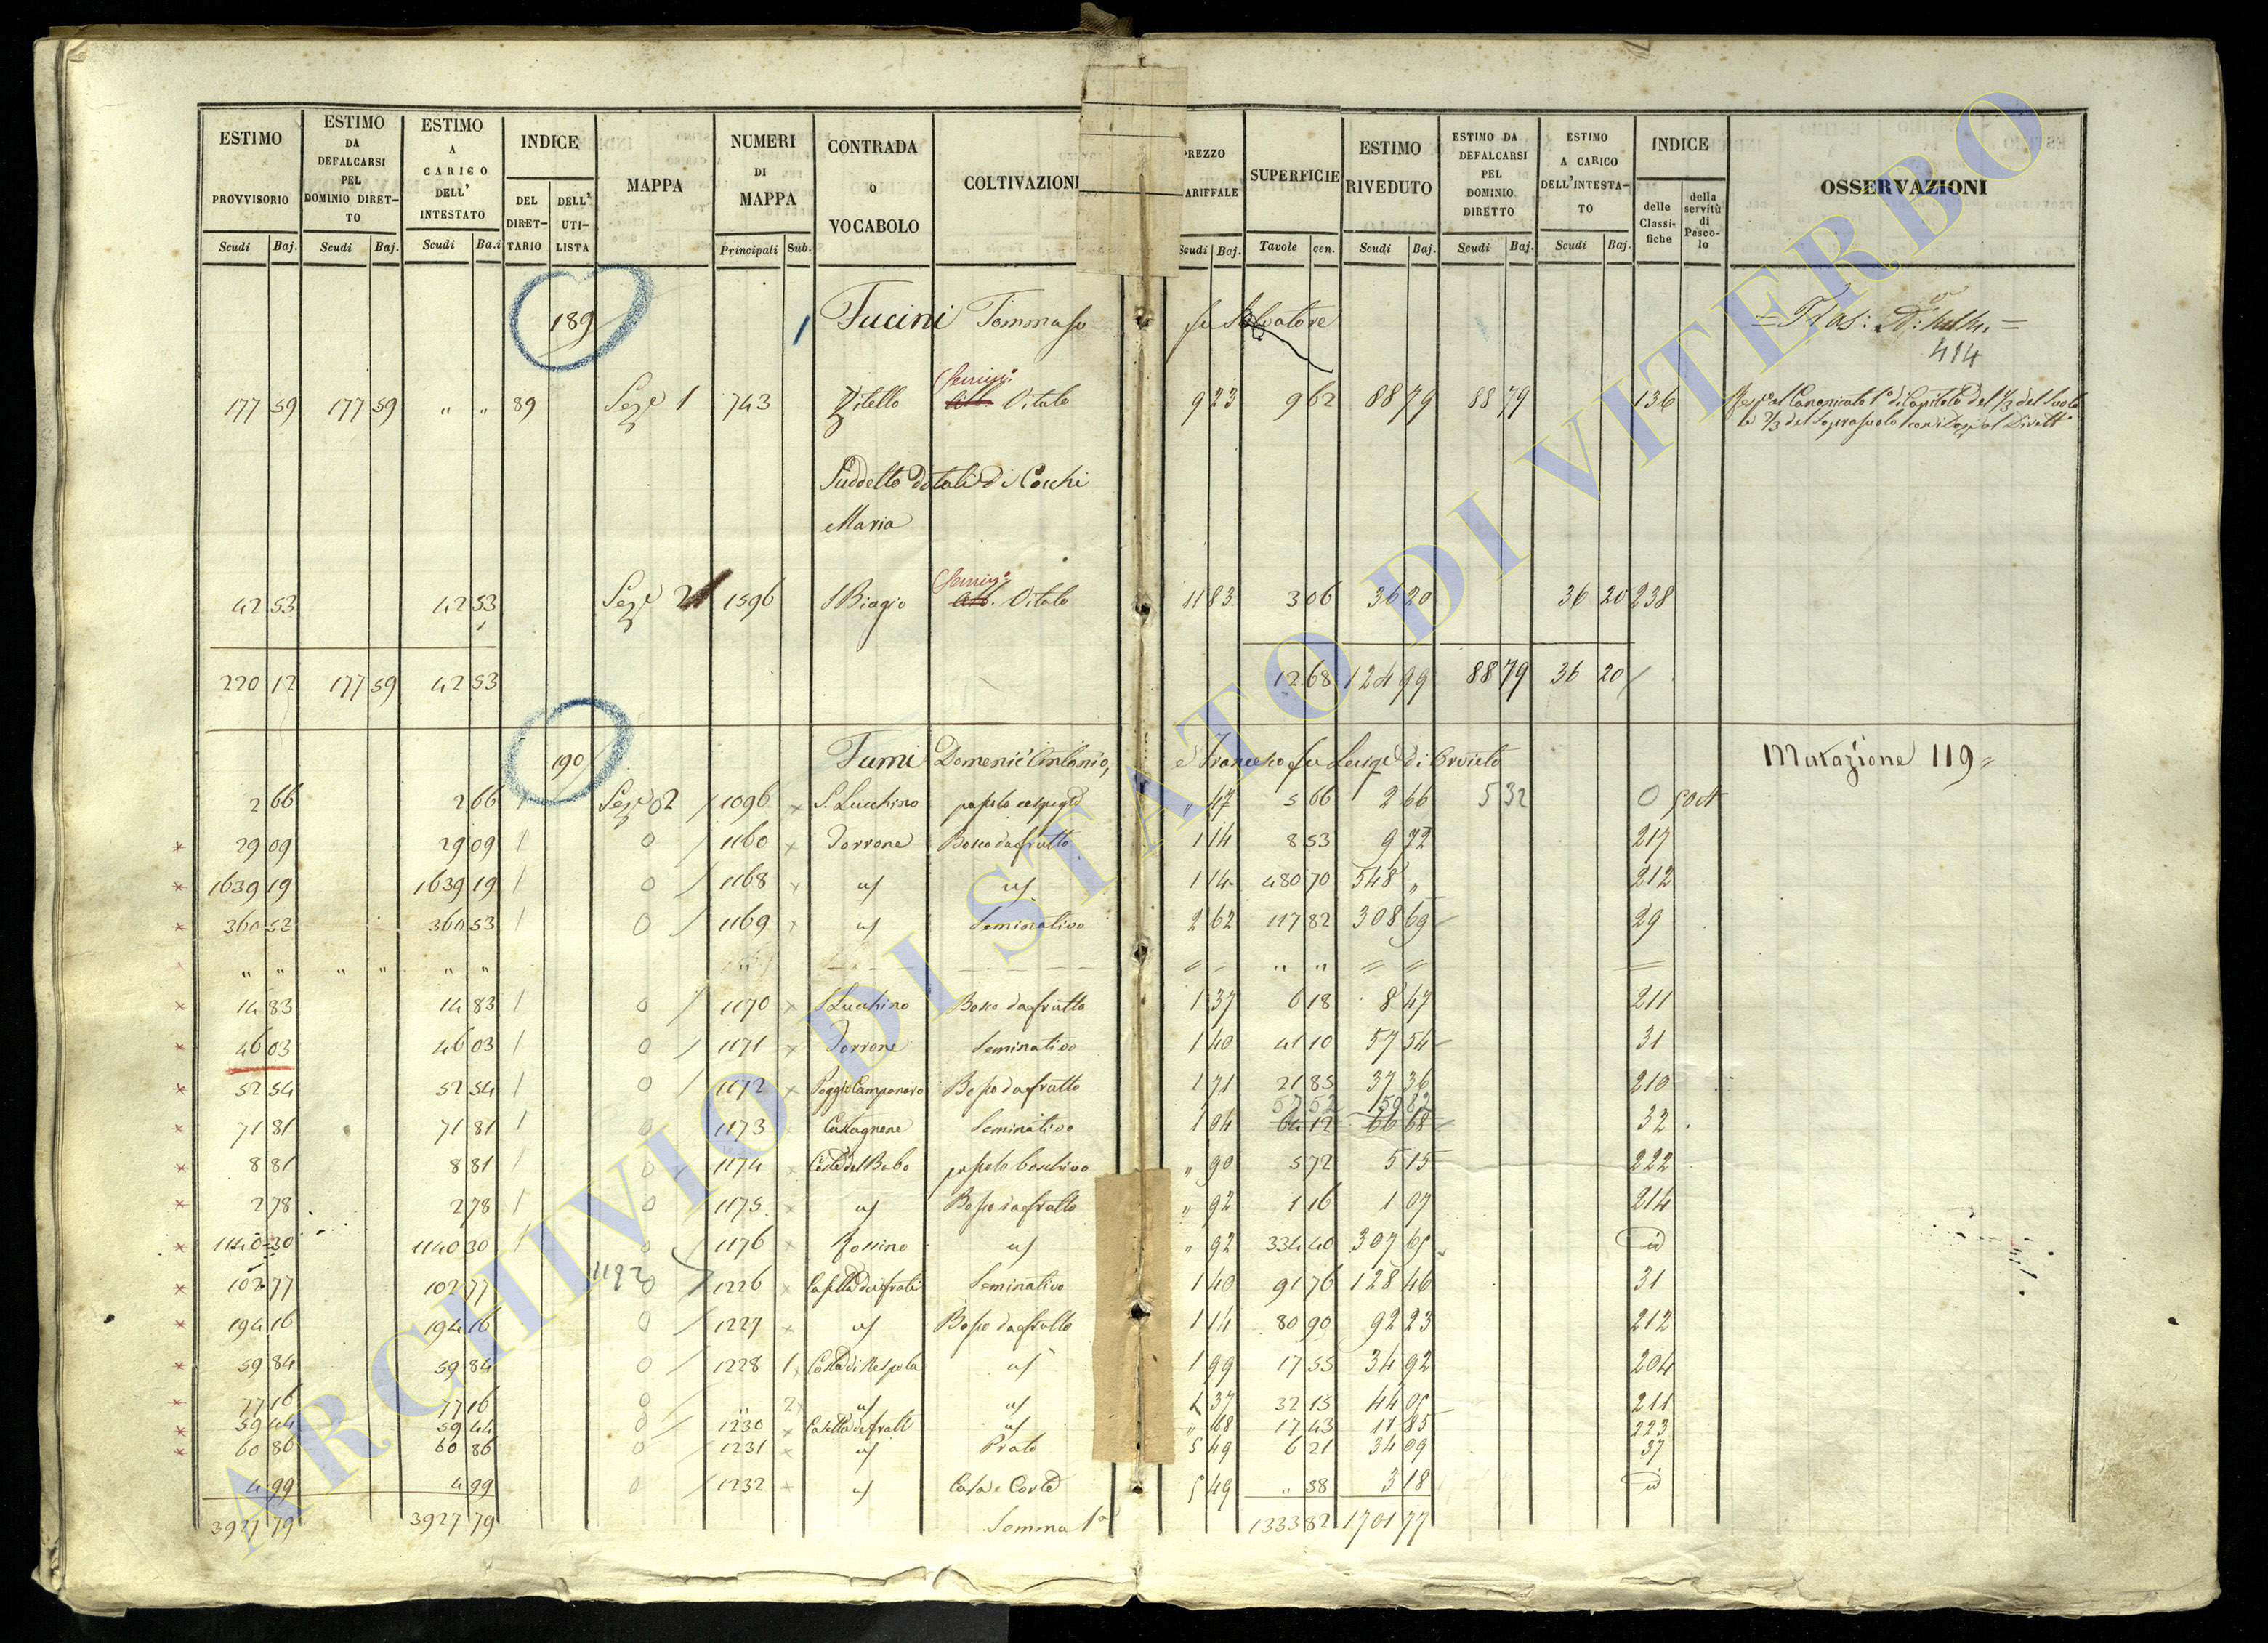 ESTIMO PROVVISORIO ESTIMO DA DEFALCARSI PEL DOMINIO DIRETTO ESTIMO A CARICO DELL' INTESTATO INDICE MAPPA NUMERI DI MAPPA CONTRADA O VOCABOLO COLTIVAZIONI PREZZO TARIFFALE SUPERFICIE ESTIMO RIVEDUTO ESTIMO DA DEFALCARSI PEL DOMINIO DIRETTO ESTIMO A CARICO DELL'INTESTATO INDICE OSSERVAZIONI
DEL DIRETTARIO DELL' UTILISTA delle Classifiche della servitù di Pascolo
Scudi Baj. Scudi Baj. Scudi Ba.i Principali Sub. Scudi Baj. Tavole cen. Scudi Baj. Scudi Baj. Scudi Baj.
189 1 Fucini Tommaso fu Salvatore
414
177 59 177 59 " " 89 Sez.e 1 743 Vitato 9 23 9 62 88 79 88 79 136
Suddetto dotali di Cocchi
Maria
42 53 42 53 Sez.e 2 1596 S Biagio Vitato 11 83 3 06 36 20 36 20 238
220 12 177 59 42 53 12 68 124 99 88 79 36 20
190 Fumi Domenic'Antonio, e Francesco fu Luigi di Orvieto Mutazione 119
2 66 2 66 Sez.e 2 1096 S. Lucchino " 47 5 66 2 66 5 32 0
29 09 29 09 0 1160 Torrone Bosco da frutto 1 14 8 53 9 72 217
1639 19 1639 19 0 1168 1 14 480 70 548 " 212
360 53 360 53 0 1169 Seminativo 2 62 117 82 308 69 29
" " " " " " " "
14 83 14 83 0 1170 S Lucchino Bosco da frutto 1 37 6 18 8 47 211
46 03 46 03 0 1171 Torrone Seminativo 1 40 41 10 57 54 31
52 54 52 54 0 1172 Poggio Campanaro Bosco da frutto 1 71 21 85 37 36 210
71 81 71 81 0 1173 Castagnone Seminativo 1 04 64 12 66 68 32
8 81 8 81 0 1174 " 90 5 72 5 15 222
2 78 2 78 0 1175 Bosco da frutto " 92 1 16 1 07 214
1140 30 1140 30 0 1176 Rossino " 92 334 40 307 65 id
1192
102 77 102 77 0 1226 Casetta dei frati Seminativo 1 40 91 76 128 46 31
194 16 194 16 0 1227 Bosco da frutto 1 14 80 90 92 23 212
59 84 59 84 0 1228 1 Costa di Nespola 1 99 17 55 34 92 204
77 16 77 16 0 " 2 1 37 32 15 44 05 211
59 44 59 44 0 1230 Casetta dei frati " 68 17 43 11 85 223
60 86 60 86 0 1231 Prato 5 49 6 21 34 09 37
4 99 4 99 0 1232 Casa e Corte 5 49 " 58 3 18 id
3927 79 3927 79 Somma 1a 1333 82 1701 77
ARCHIVIO DI STATO DI VITERBO